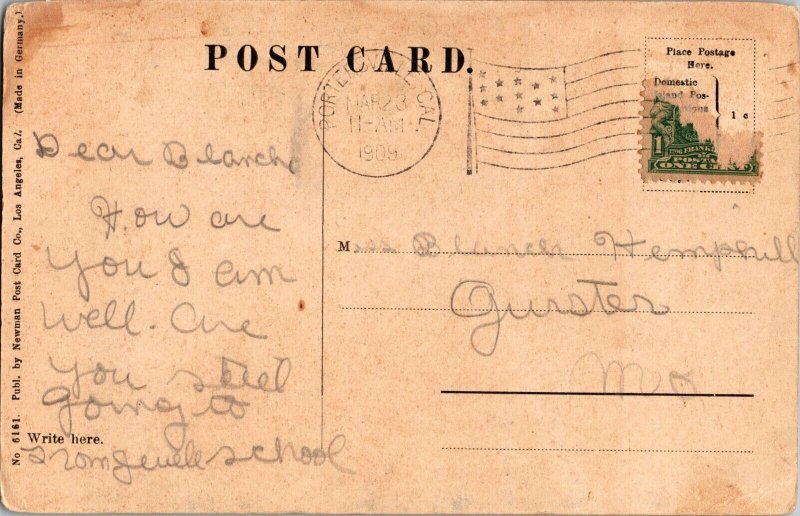 POST CARD.
Place Postage
Here.
Domestic
Island Pos-
sessions
1 c
PORTERVILLE, CAL.
MAR 23
11-AM
1909
1
POST
ONE CENT
Dear Blanch
How are
you I am
well. are
you still
going to
school
Write here.
Miss Blanch Hemphill
Gurster
Mo
No 6161. Publ. by Newman Post Card Co., Los Angeles, Cal. (Made in Germany.)